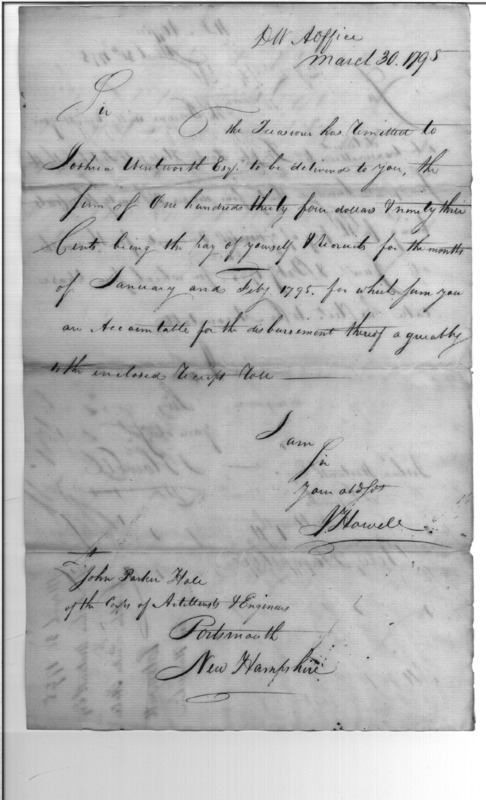 DW Aoffice
March 30. 1795
Sir
The Treasurer has remitted to
Joshua Wentworth Esq. to be delivered to you, the
sum of One hundred thirty four dollars & ninety three
Cents being the pay of yourself & recruits for the months
of January and Feby. 1795. for which sum you
are Accountable for the disbursement thereof agreeably
to the enclosed receipt roll
I am
Sir
your obd Svt
J Howell
John Parker Hale
of the Corps of Artillerists & Engineers
Portsmouth
New Hampshire